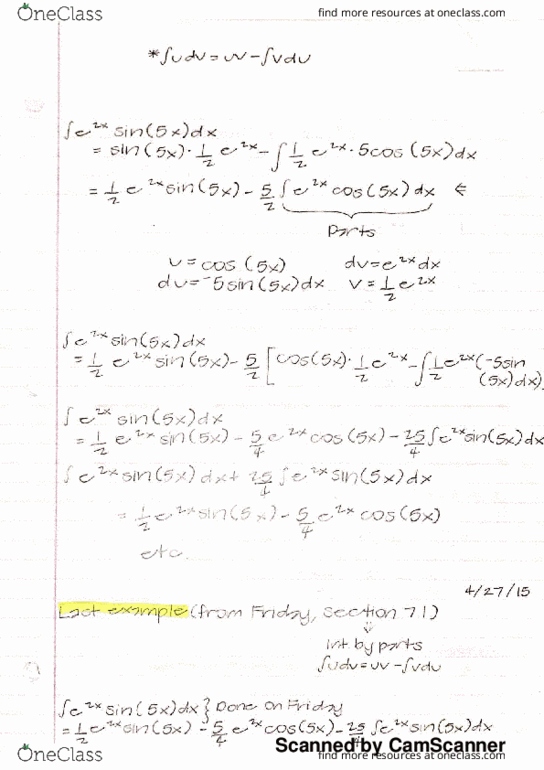 OneClass
find more resources at oneclass.com
*∫udv=uv-∫vdu
∫e^2x sin(5x)dx
= sin(5x)·1/2 e^2x-∫1/2 e^2x·5cos(5x)dx
= 1/2 e^2x sin(5x) - 5/2 ∫e^2x cos(5x)dx ⇐
Parts
u=cos (5x) dv=e^2x dx
du=-5sin(5x)dx v=1/2 e^2x
∫e^2x sin(5x)dx
= 1/2 e^2x sin(5x) - 5/2 [cos(5x)·1/2 e^2x-∫1/2 e^2x(-5sin
(5x)dx)
∫e^2x sin(5x)dx
= 1/2 e^2x sin(5x) - 5/4 e^2x cos(5x) - 25/4 ∫e^2x sin(5x)dx
∫e^2x sin(5x)dx + 25/4 ∫e^2x sin(5x)dx
= 1/2 e^2x sin(5x) - 5/4 e^2x cos(5x)
etc.
4/27/15
Last example (from Friday, Section 7.1)
⇓
Int by parts
∫udv=uv-∫vdu
∫e^2x sin(5x)dx } Done on Friday
= 1/2 e^2x sin(5x) - 5/4 e^2x cos(5x) - 25/4 ∫e^2x sin(5x)dx
Scanned by CamScanner
OneClass
find more resources at oneclass.com